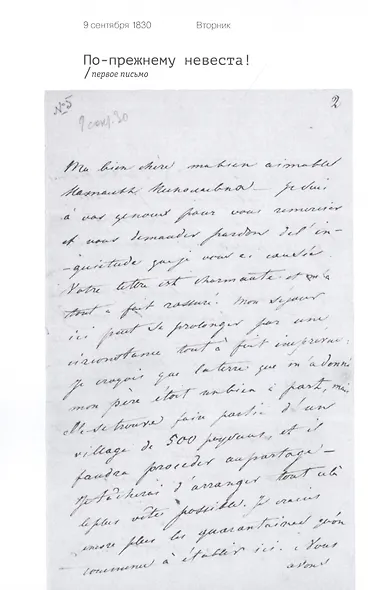 9 сентября 1830 Вторник
По-прежнему невеста!
/первое письмо
№5
2
9 сент. 30
Ma bien chère, ma bien aimable
Наталья Николаевна — je suis
à vos genoux pour vous remercier
et vous demander pardon de l'in-
-quiétude que je vous ai causée.
Votre lettre est charmante et m'a
tout à fait rassuré. Mon séjour
ici peut se prolonger par une
circonstance tout à fait imprévue:
Je croyais que la terre que m'a donné
mon père était un bien à part, mais
elle se trouve faire partie d'un
village de 500 paysans, et il
faudra procéder au partage —
Je tâcherai d'arranger tout cela
le plus vite possible. Je crains
encore plus les quarantaines qu'on
commence à établir ici. Nous
avons